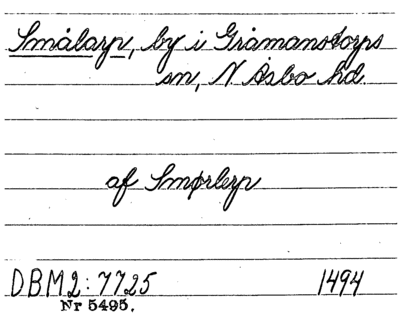 Smålarp, by i Gråmanstorps
sn, N Åsbo hd.
af Smørlerp
DBM2:7725 1494
Nr 5495.